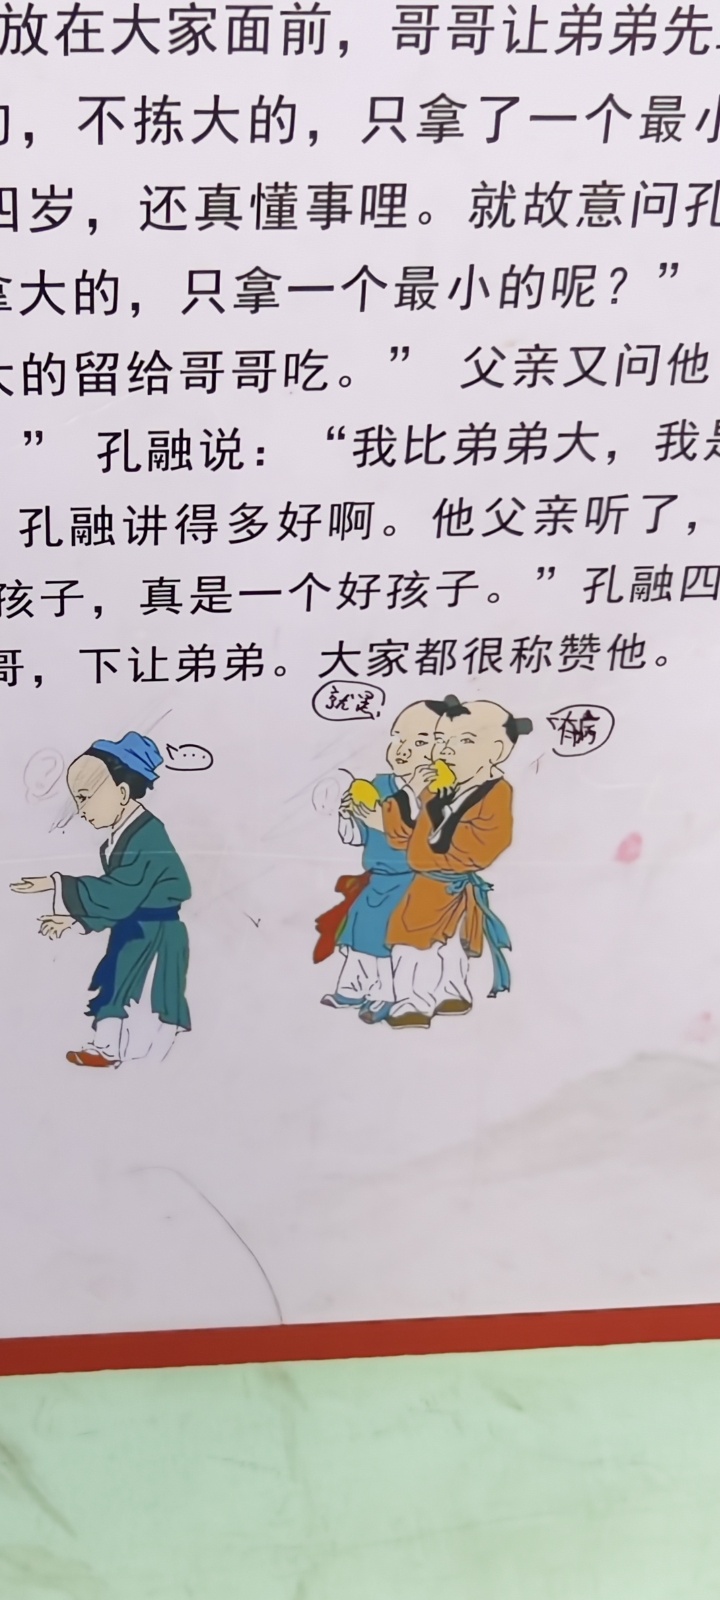 放在大家面前，哥哥让弟弟先
，不拣大的，只拿了一个最小
四岁，还真懂事哩。就故意问孔
拿大的，只拿一个最小的呢？”
大的留给哥哥吃。” 父亲又问他
” 孔融说：“我比弟弟大，我是
孔融讲得多好啊。他父亲听了，
孩子，真是一个好孩子。”孔融四
哥，下让弟弟。大家都很称赞他。
就是!
有病
……